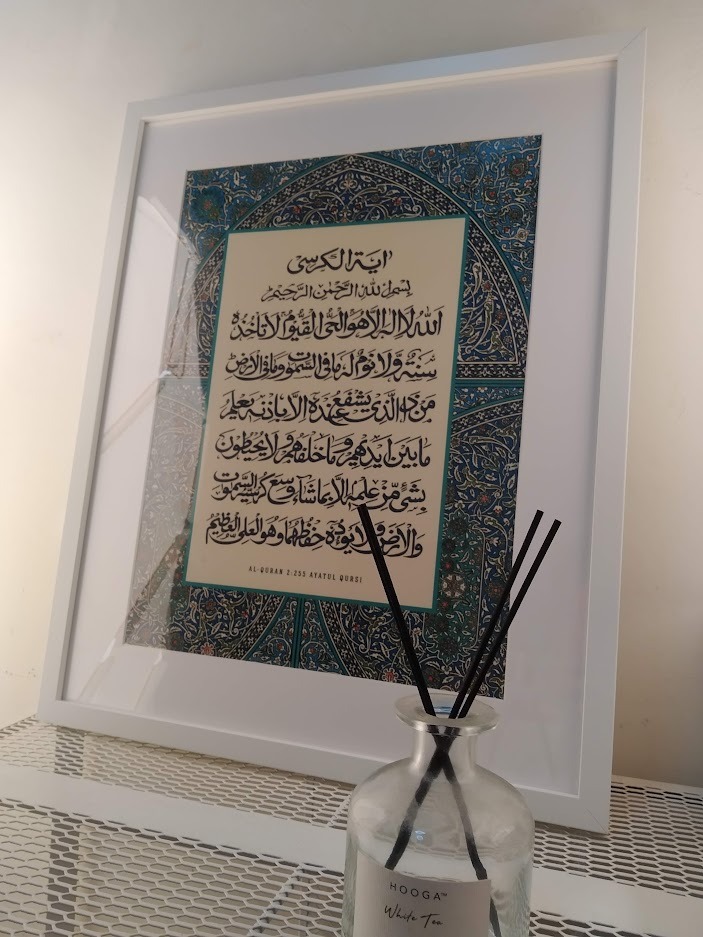 اية الكرسى
بسم الله الرحمن الرحيم
الله لا اله الا هو الحى القيوم لا تاخذه
سنة ولا نوم له ما فى السموت وما فى الارض
من ذا الذى يشفع عنده الا باذنه يعلم
ما بين ايديهم وما خلفهم ولا يحيطون
بشىء من علمه الا بما شاء وسع كرسيه السموت
والارض ولا يوده حفظهما وهو العلى العظيم
AL-QURAN 2:255 AYATUL QURSI
HOOGA™
White Tea